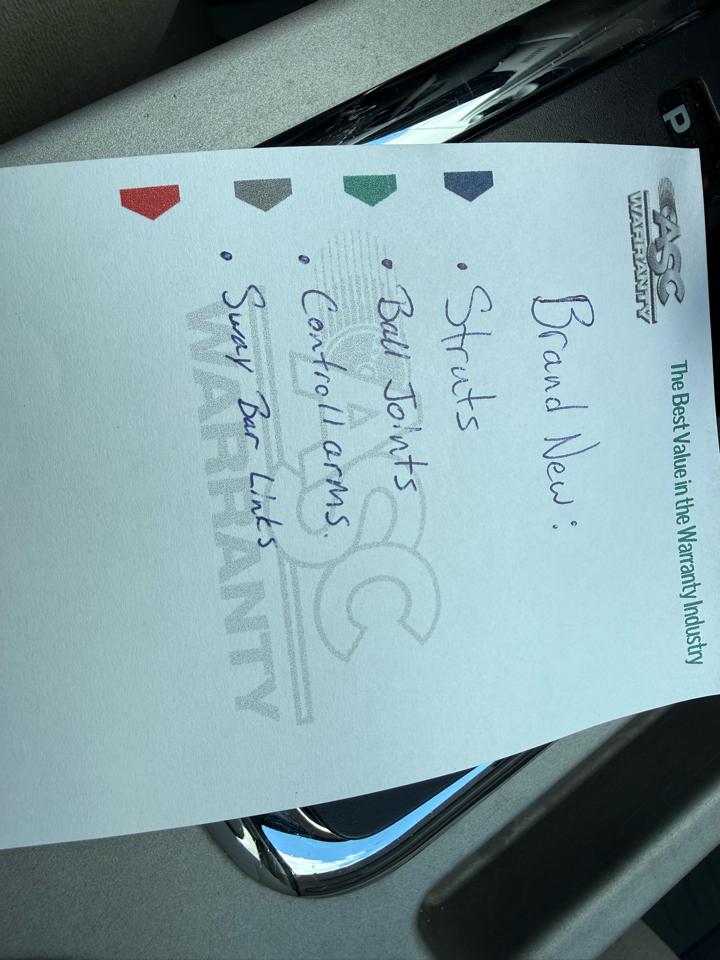 ASC
WARRANTY
The Best Value in the Warranty Industry
Brand New:
• Struts
• Ball Joints
• Controll arms.
• Sway Bar Links
ASC
WARRANTY
P